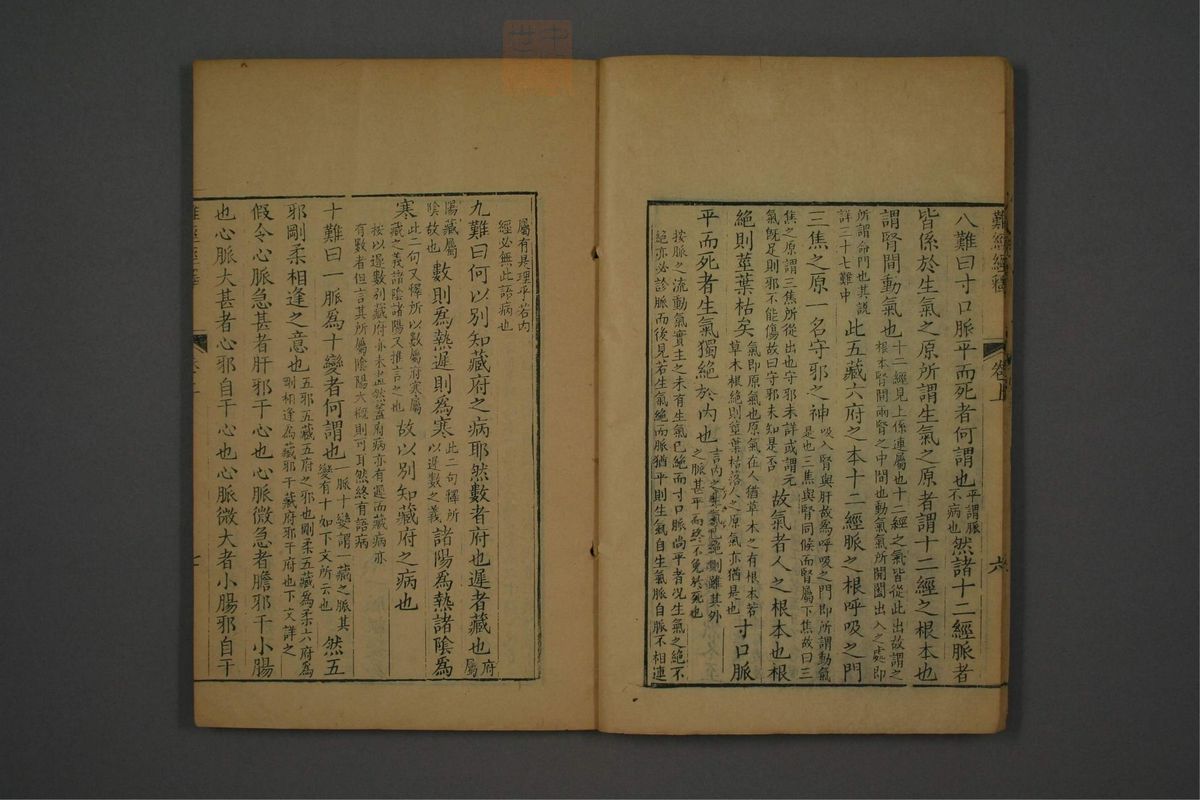 難經經釋
卷上
六
八難曰寸口脈平而死者何謂也平謂脈不病也然諸十二經脈者
皆係於生氣之原所謂生氣之原者謂十二經之根本也
謂腎間動氣也十二經見上係連屬也十二經之氣皆從此出故謂之根本腎間兩腎之中間也動氣氣所開闔出入之處即
所謂命門也其說詳三十七難中此五藏六府之本十二經脈之根呼吸之門
三焦之原一名守邪之神吸入腎與肝故為呼吸之門即所謂動氣是也三焦與腎同候而腎屬下焦故曰三
焦之原謂三焦所從出也守邪未詳或謂元氣既足則邪不能傷故曰守邪未知是否故氣者人之根本也根
絕則莖葉枯矣氣即原氣也原氣在人猶草木之有根本若草木根絕則莖葉枯落人之原氣亦猶是也寸口脈
平而死者生氣獨絕於內也言內之生氣已絕則雖其外之脈甚平而終不免於死也
按脈之流動氣實主之未有生氣已絕而寸口脈尚平者况生氣之絕不
絕亦必診脈而後見若生氣絕而脈猶平則生氣自生氣脈自脈不相連
屬有是理乎若內經必無此語病也
九難曰何以別知藏府之病耶然數者府也遲者藏也府屬
陽藏屬陰故也數則為熱遲則為寒此二句釋所以遲數之義諸陽為熱諸陰為
寒此二句又釋所以數屬府寒屬藏之義諸陰諸陽又推言之也故以別知藏府之病也
按以遲數別藏府亦未盡然蓋府病亦有遲而藏病亦
有數者但言其所屬陰陽大概則可耳然終有語病
十難曰一脈為十變者何謂也一脈十變謂一藏之脈其變有十如下文所云也然五
邪剛柔相逢之意也五邪五藏五府之邪也剛柔五藏為柔六府為剛相逢為藏邪干藏府邪干府也下文詳之
假令心脈急甚者肝邪干心也心脈微急者膽邪干小腸
也心脈大甚者心邪自干心也心脈微大者小腸邪自干